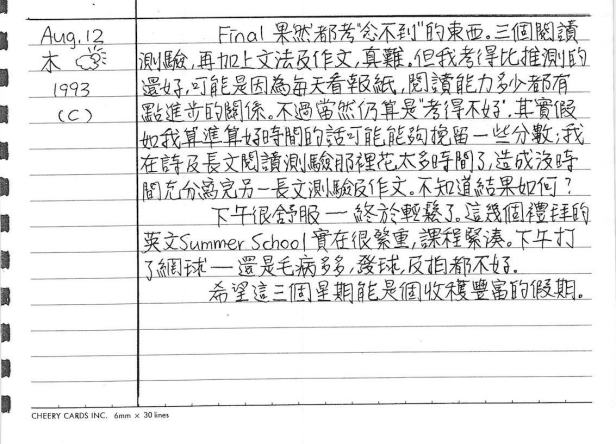 Aug. 12
木
1993
(C)
Final 果然都考“念不到”的東西。三個閱讀
測驗，再加上文法及作文，真難。但我考得比推測的
還好，可能是因為每天看報紙，閱讀能力多少都有
點進步的關係。不過當然仍算是“考得不好”。其實假
如我算準算好時間的話可能，能夠挽留一些分數；我
在詩及長文閱讀測驗那裡花太多時間了，造成沒時
間充分寫完另一長文測驗及作文。不知道結果如何？
下午很舒服 — 終於輕鬆了。這幾個禮拜的
英文Summer School 實在很緊重，課程緊湊。下午打
了網球 — 還是毛病多多，發球，反拍都不好。
希望這三個星期能是個收穫豐富的假期。
CHEERY CARDS INC. 6mm × 30 lines